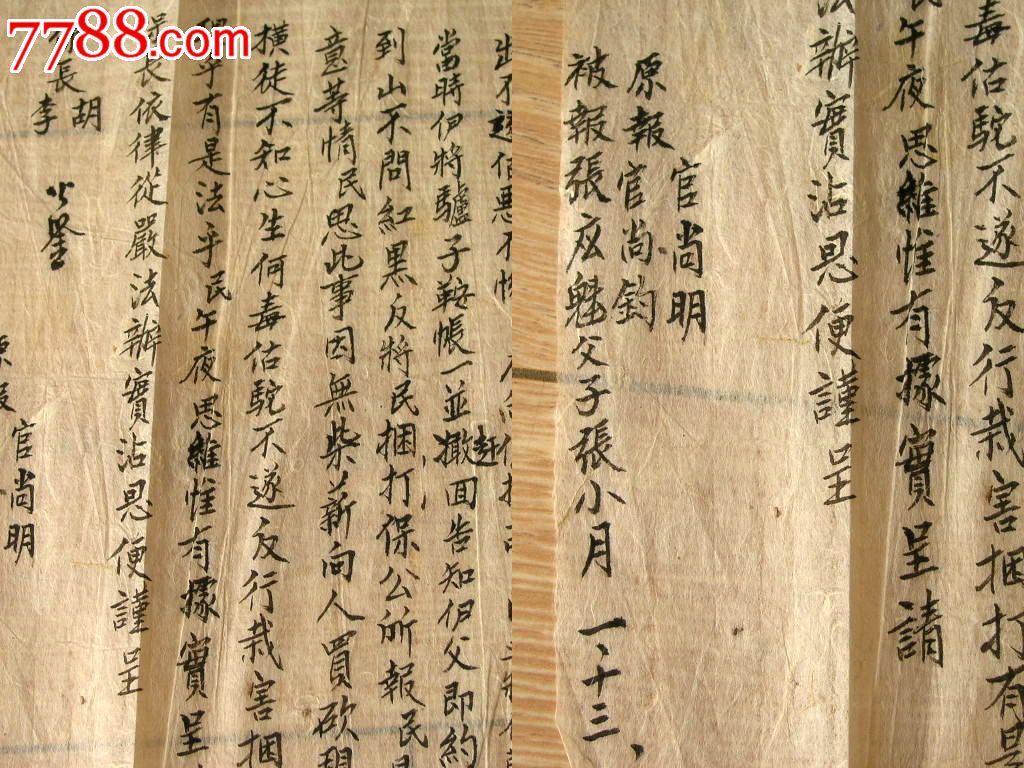 7788.com
出不遂
當時伊將驢子鞍帳一並撖赶回告知伊父即約
到山不問紅黑反將民捆打保公所報民
意等情民思此事因無柴薪向人買砍
橫徒不知心生何毒估騐不遂反行栽害捆
有是法乎民午夜思維惟有據實呈
長依律從嚴法辦實沾恩便謹呈
長胡
李
公鑒
官尚明
毒估騐不遂反行栽害捆打有是
民午夜思維惟有據實呈請
法辦實沾恩便謹呈
官尚明
原報官尚鈞
被報張広魁父子張小月
一、十三、